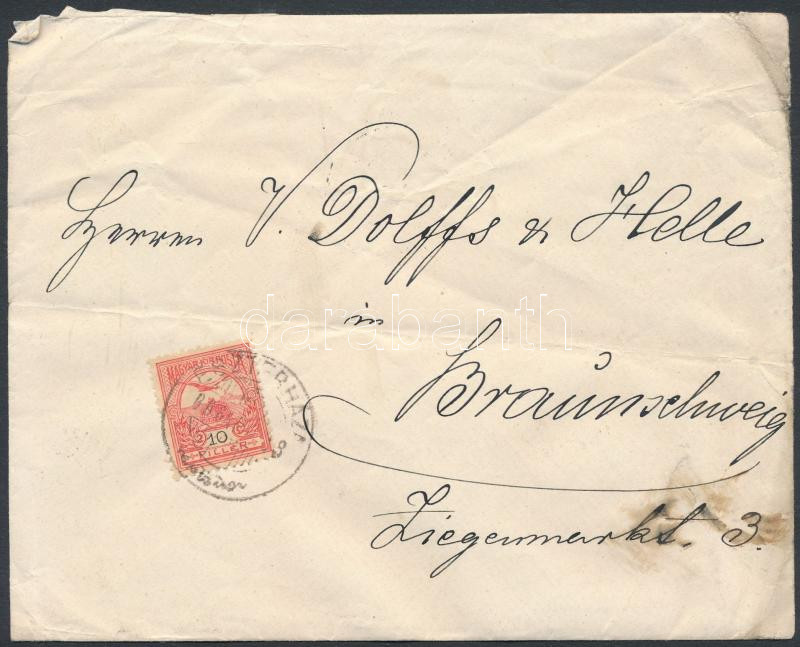 Herren V. Dolffs & Helle
in
Braunschweig
Ziegenmarkt. 3.
MAGYAR KIR. POSTA
10
FILLER
darabanth